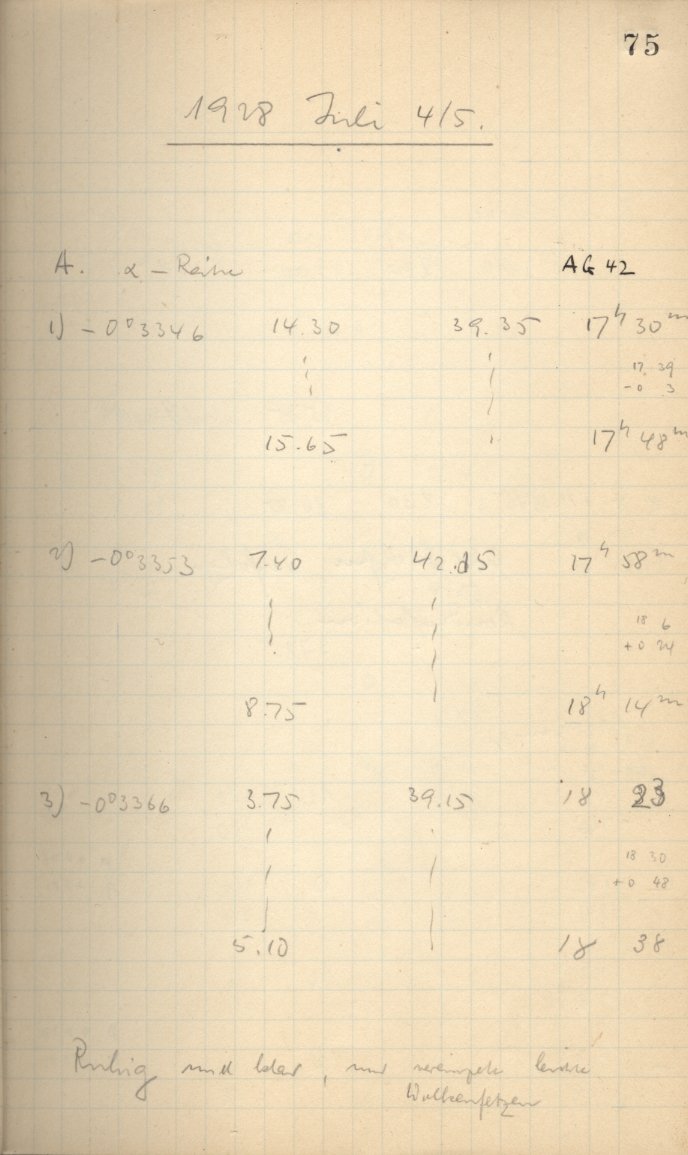 75
1928 Juli 4/5.
A. α – Reihe AG 42
1) – 0°3346 14.30 39.35 17ʰ 30ᵐ
17 39
-0 3
15.65 17ʰ 48ᵐ
2) – 0°3353 7.40 42.15 17ʰ 58ᵐ
18 6
+0 24
8.75 18ʰ 14ᵐ
3) – 0°3366 3.75 39.15 18 23
18 30
+0 48
5.10 18 38
Ruhig und klar, nur vereinzelte leichte
Wolkenfetzen